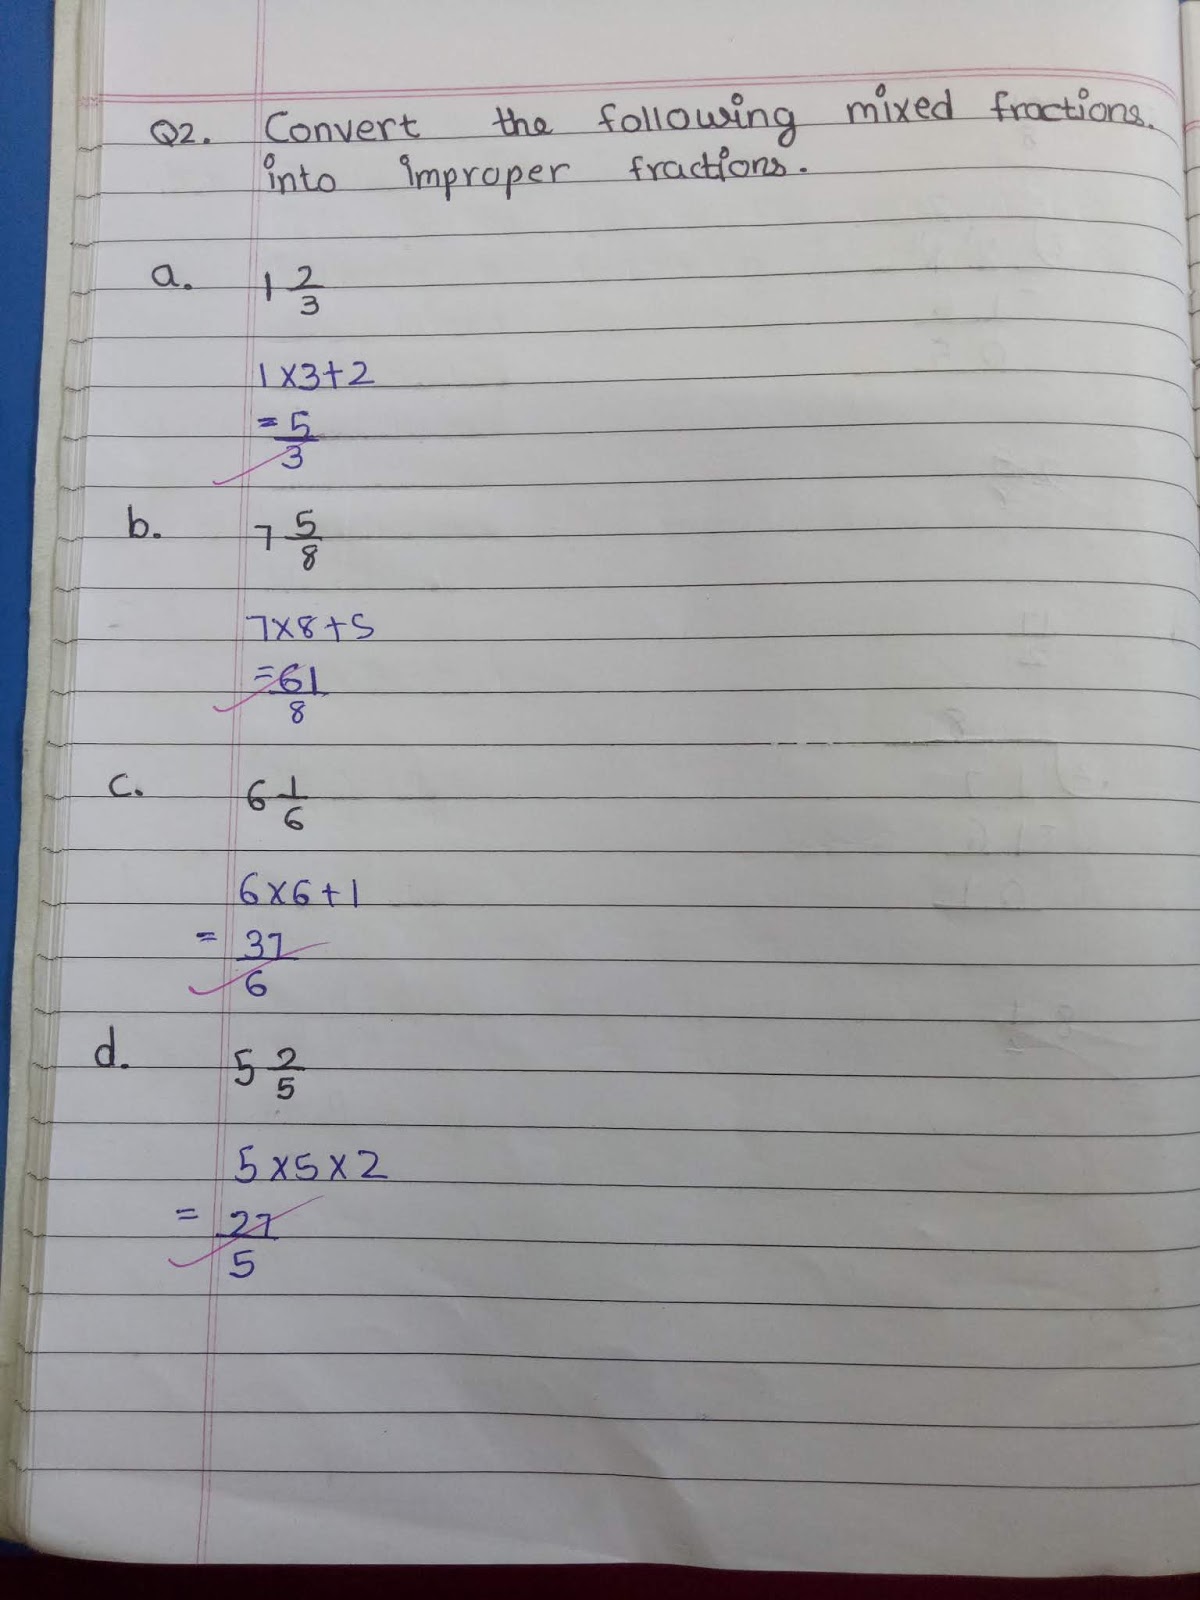 Q2. Convert the following mixed fractions.
into improper fractions.
a. 1 2/3
1×3+2
= 5/3
b. 7 5/8
7×8+5
= 61/8
c. 6 1/6
6×6+1
= 37/6
d. 5 2/5
5×5×2
= 27/5